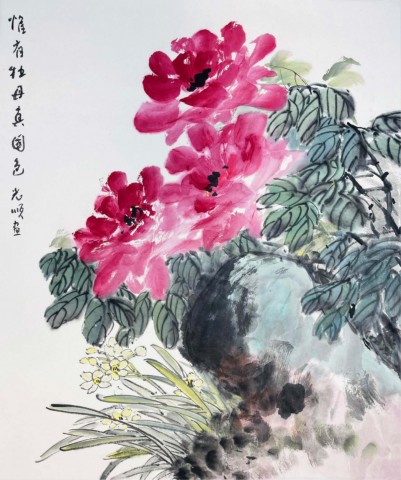 惟有牡丹真国色 光順画